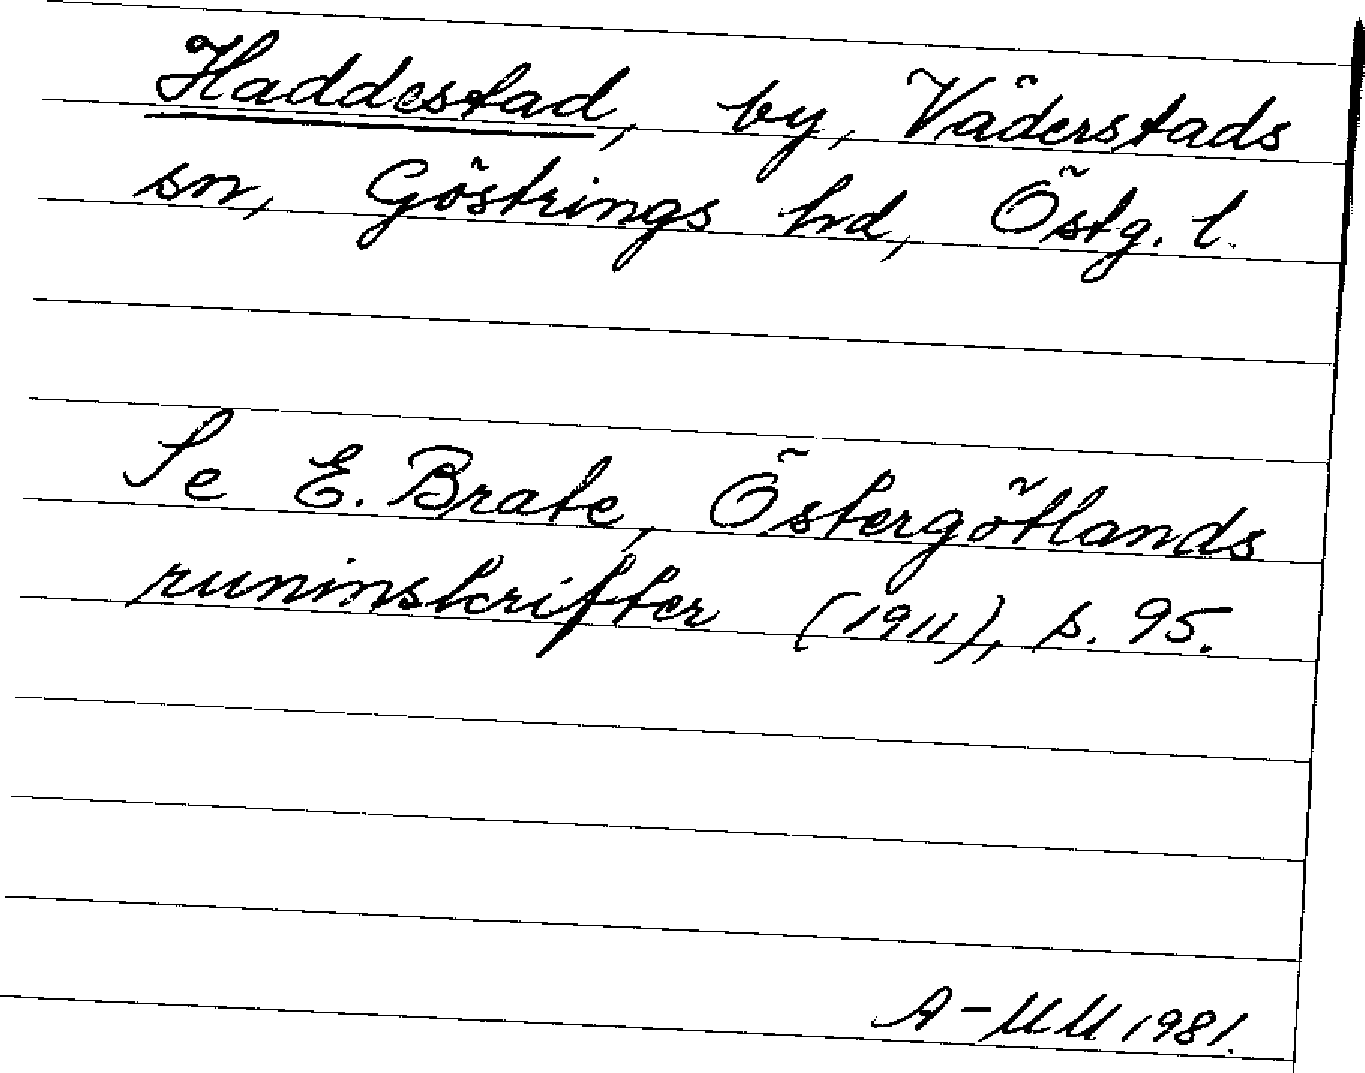 Haddestad, by, Väderstads
sn, Göstrings hd, Östg. l.
Se E. Brate, Östergötlands
runinskrifter (1911), s. 95.
A-MM 1981.